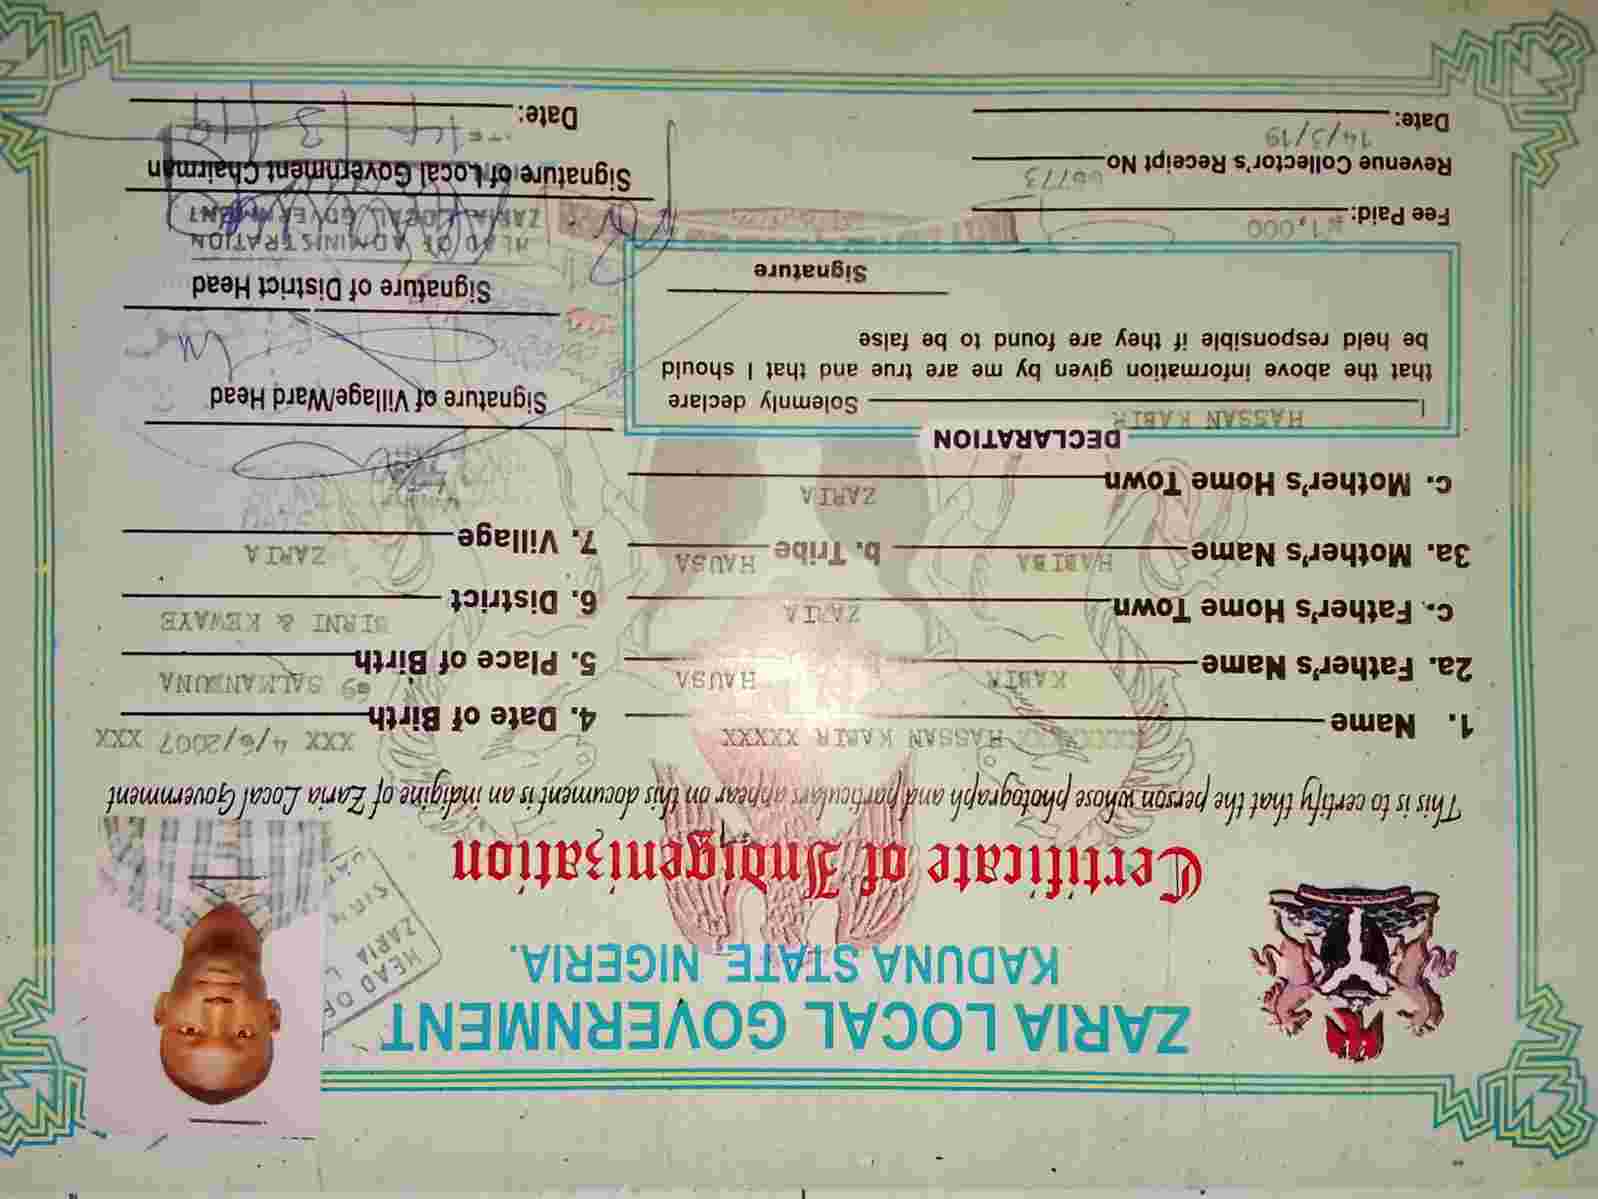 ZARIA LOCAL GOVERNMENT
KADUNA STATE NIGERIA.
HEAD OF
ZARIA L
Certificate of Indigenization
This is to certify that the person whose photograph and particulars appear on this document is an indigine of Zaria Local Government
1. Name HASSAN KABIR XXXXX
4. Date of Birth XXX 4/6/2007 XXX
2a. Father's Name KABIR HAUSA
5. Place of Birth 69 SALMANDUNA
c. Father's Home Town ZARIA
6. District BIRNI & KEWAYE
3a. Mother's Name HABIBA b. Tribe HAUSA
7. Village ZARIA
c. Mother's Home Town ZARIA
DECLARATION
I HASSAN KABIR Solemnly declare
that the above information given by me are true and that I should
be held responsible if they are found to be false
Signature
Signature of Village/Ward Head
Signature of District Head
HEAD OF ADMINISTRATION
ZARIA LOCAL GOVERNMENT
Signature of Local Government Chairman
Date: 14 3 19
Fee Paid: ₦1,000
Revenue Collector's Receipt No 66773
Date: 14/3/19